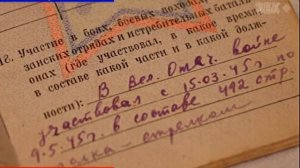 15. Участие в боях, боевых походах, парти-
занских отрядах и истребительных баталь-
онах (где участвовал, в какое время,
в составе какой части и в какой долж-
ности):
В Вел. Отеч. войне
участвовал с 15.03.45 г. по
9.5.45 г. в составе 492 стр.
полка - стрелком